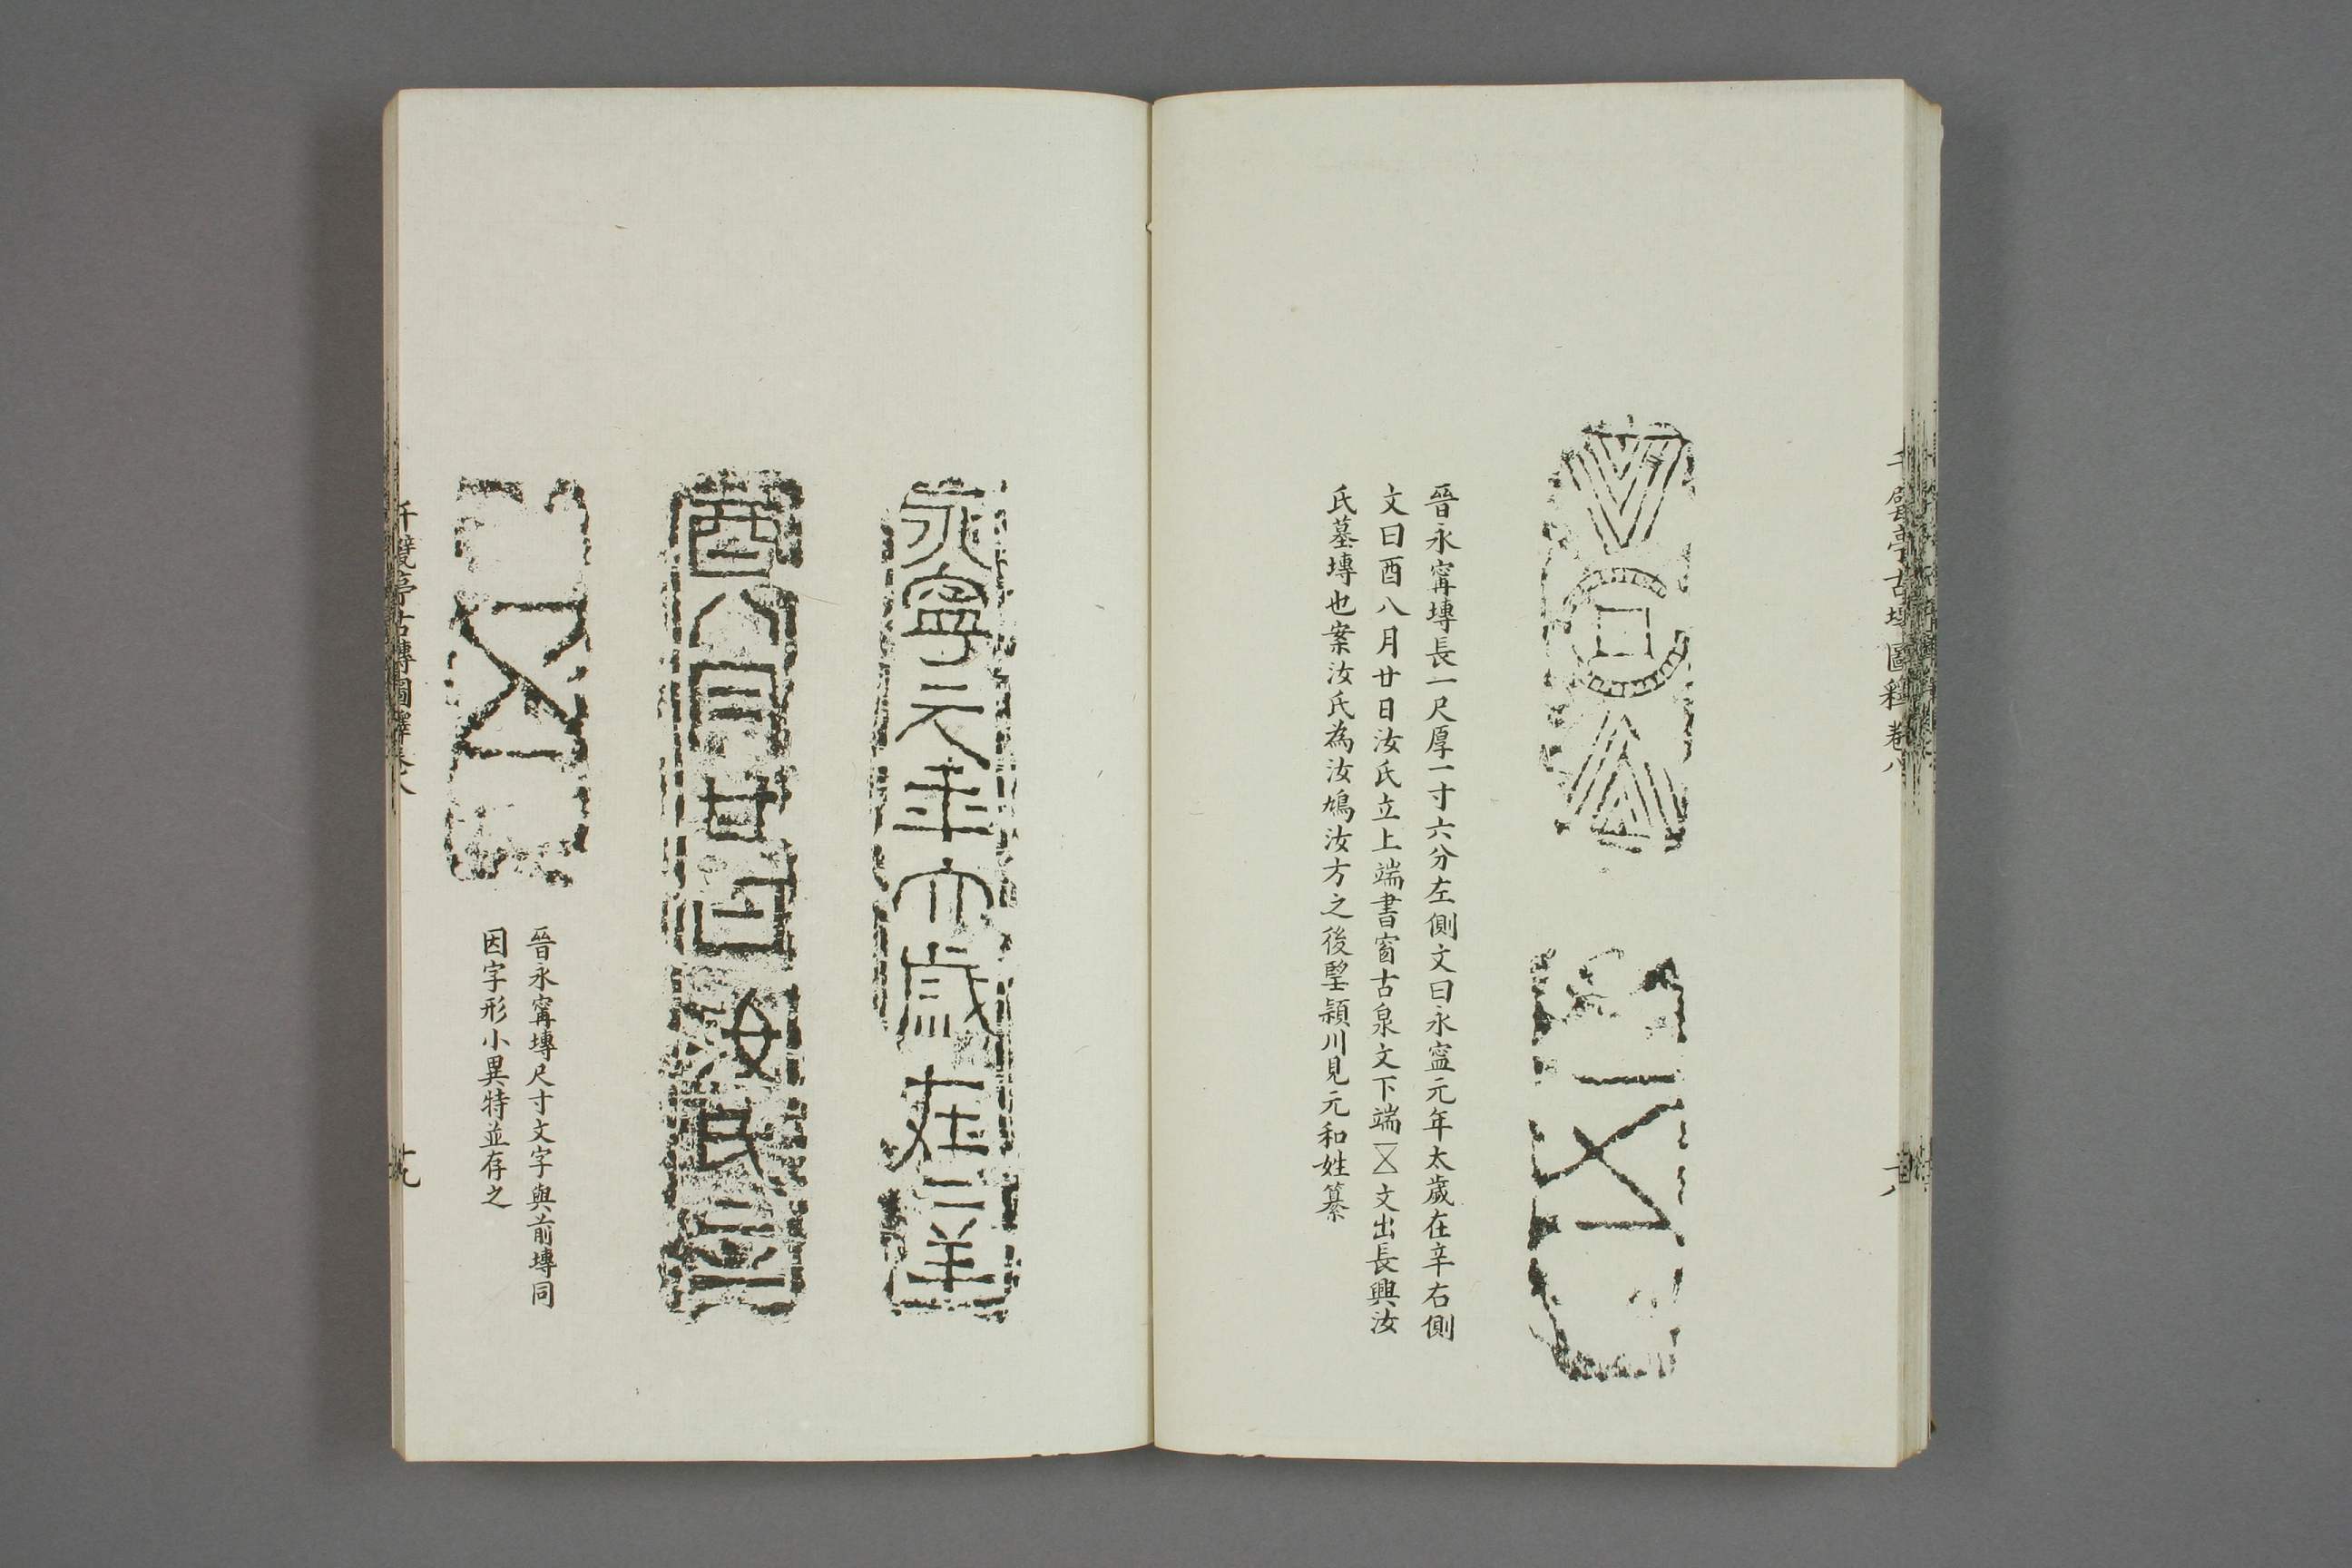 千甓亭古塼圖釋卷八
晉永甯塼長一尺厚一寸六分左側文曰永寍元年太歲在辛右側
文曰酉八月廿日汝氏立上端書窗古泉文下端文出長興汝
氏墓塼也案汝氏為汝鳩汝方之後朢潁川見元和姓纂
永寧元年太歲在辛
酉八月廿日汝氏立
晉永甯塼尺寸文字與前塼同
因字形小異特並存之
千甓亭古塼圖釋卷八